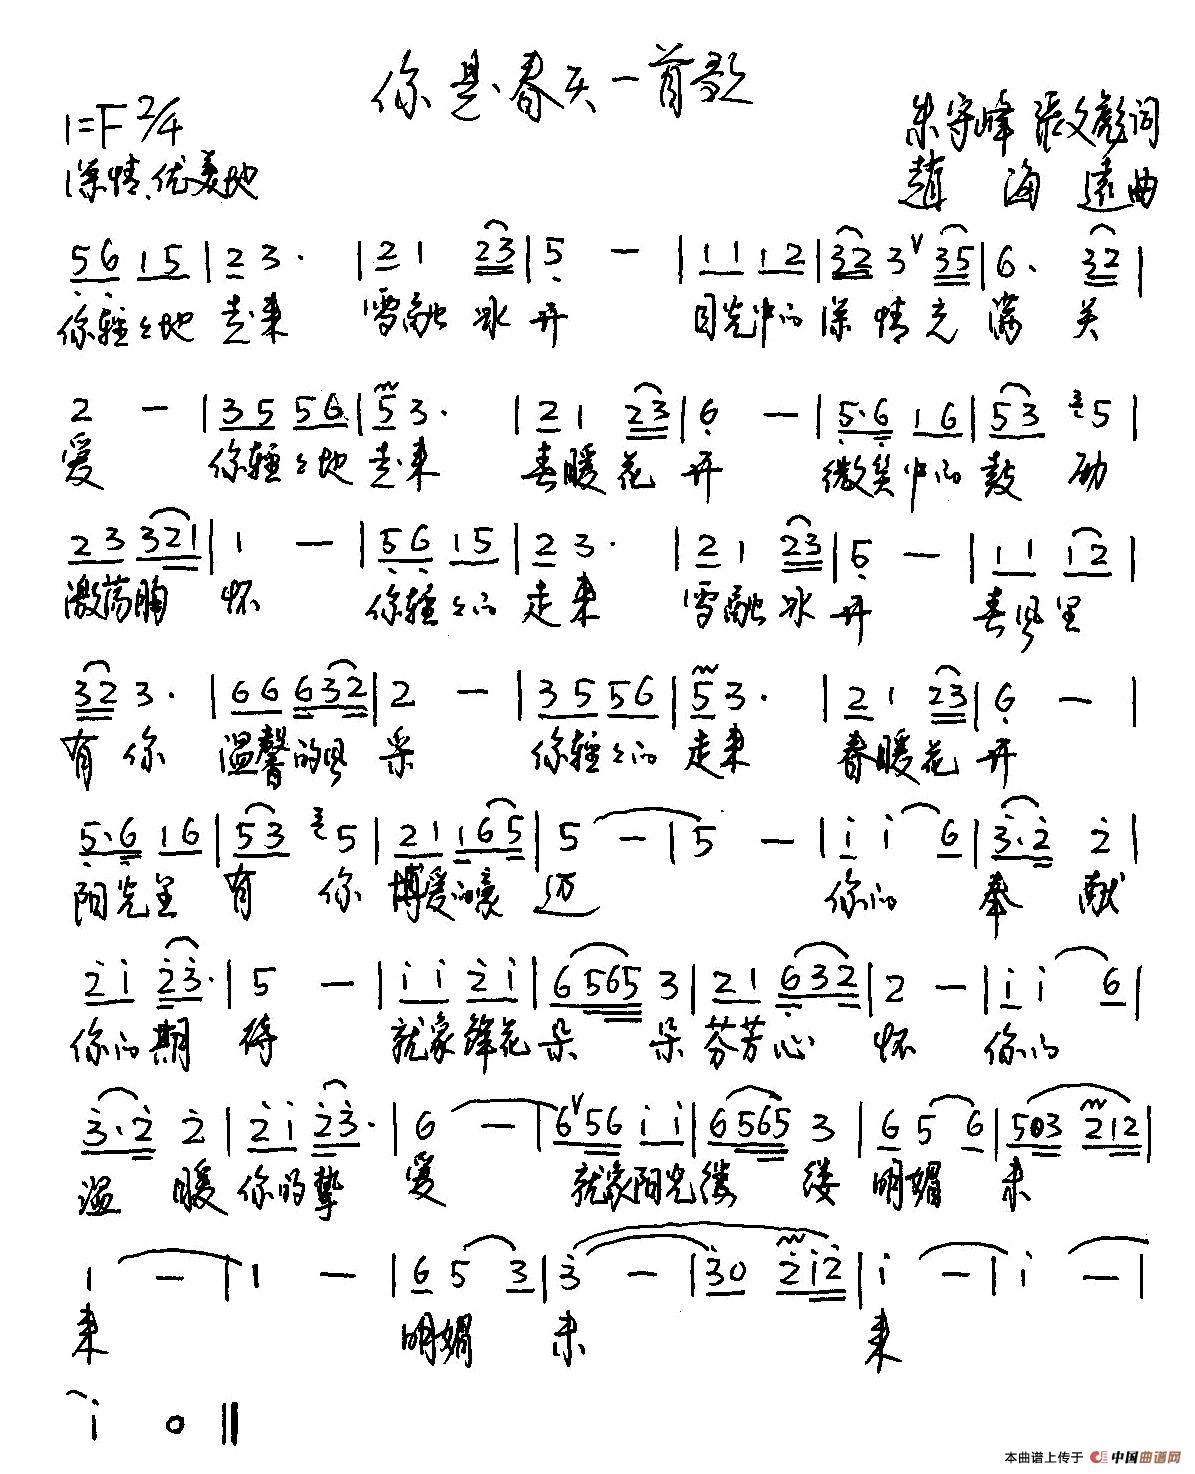 你是春天一首歌
1=F 2/4
朱守峰 张文彪词
深情、优美地
赵海远曲
5 6 1 5 | 2 3 · | 2 1 2 3 | 5 — | 1 1 1 2 | 3 2 3 ∨ 3 5 | 6 · 3 2 |
你轻々地走来 雪融冰开 目光中的深情充满关
2 — | 3 5 5 6 | 5 3 · | 2 1 2 3 | 6 — | 5 · 6 1 6 | 5 3 3 5 |
爱 你轻々地走来 春暖花开 微笑中的鼓励
2 3 3 2 1 | 1 — | 5 6 1 5 | 2 3 · | 2 1 2 3 | 5 — | 1 1 1 2 |
激荡胸怀 你轻々的走来 雪融冰开 春风里
3 2 3 · | 6 6 6 3 2 | 2 — | 3 5 5 6 | 5 3 · | 2 1 2 3 | 6 — |
有你 温馨的风采 你轻々的走来 春暖花开
5 · 6 1 6 | 5 3 3 5 | 2 1 1 6 5 | 5 — | 5 — | i i 6 | 3 · 2 2 |
阳光里有你 博爱的豪迈 你的奉献
2 i 2 3 · | 5 — | i i 2 i | 6 5 6 5 3 | 2 1 6 3 2 | 2 — | i i 6 |
你的期待 就象鲜花朵朵芬芳心怀 你的
3 · 2 2 | 2 i 2 3 · | 6 — | 6 ∨ 5 6 i i | 6 5 6 5 3 | 6 5 6 | 5 0 3 2 1 2 |
温暖你的挚爱 就象阳光缕缕明媚未
1 — | 1 — | 6 5 3 | 3 — | 3 0 2 i 2 | i — | i — |
来 明媚未来
i 0 ‖
本曲谱上传于 中国曲谱网